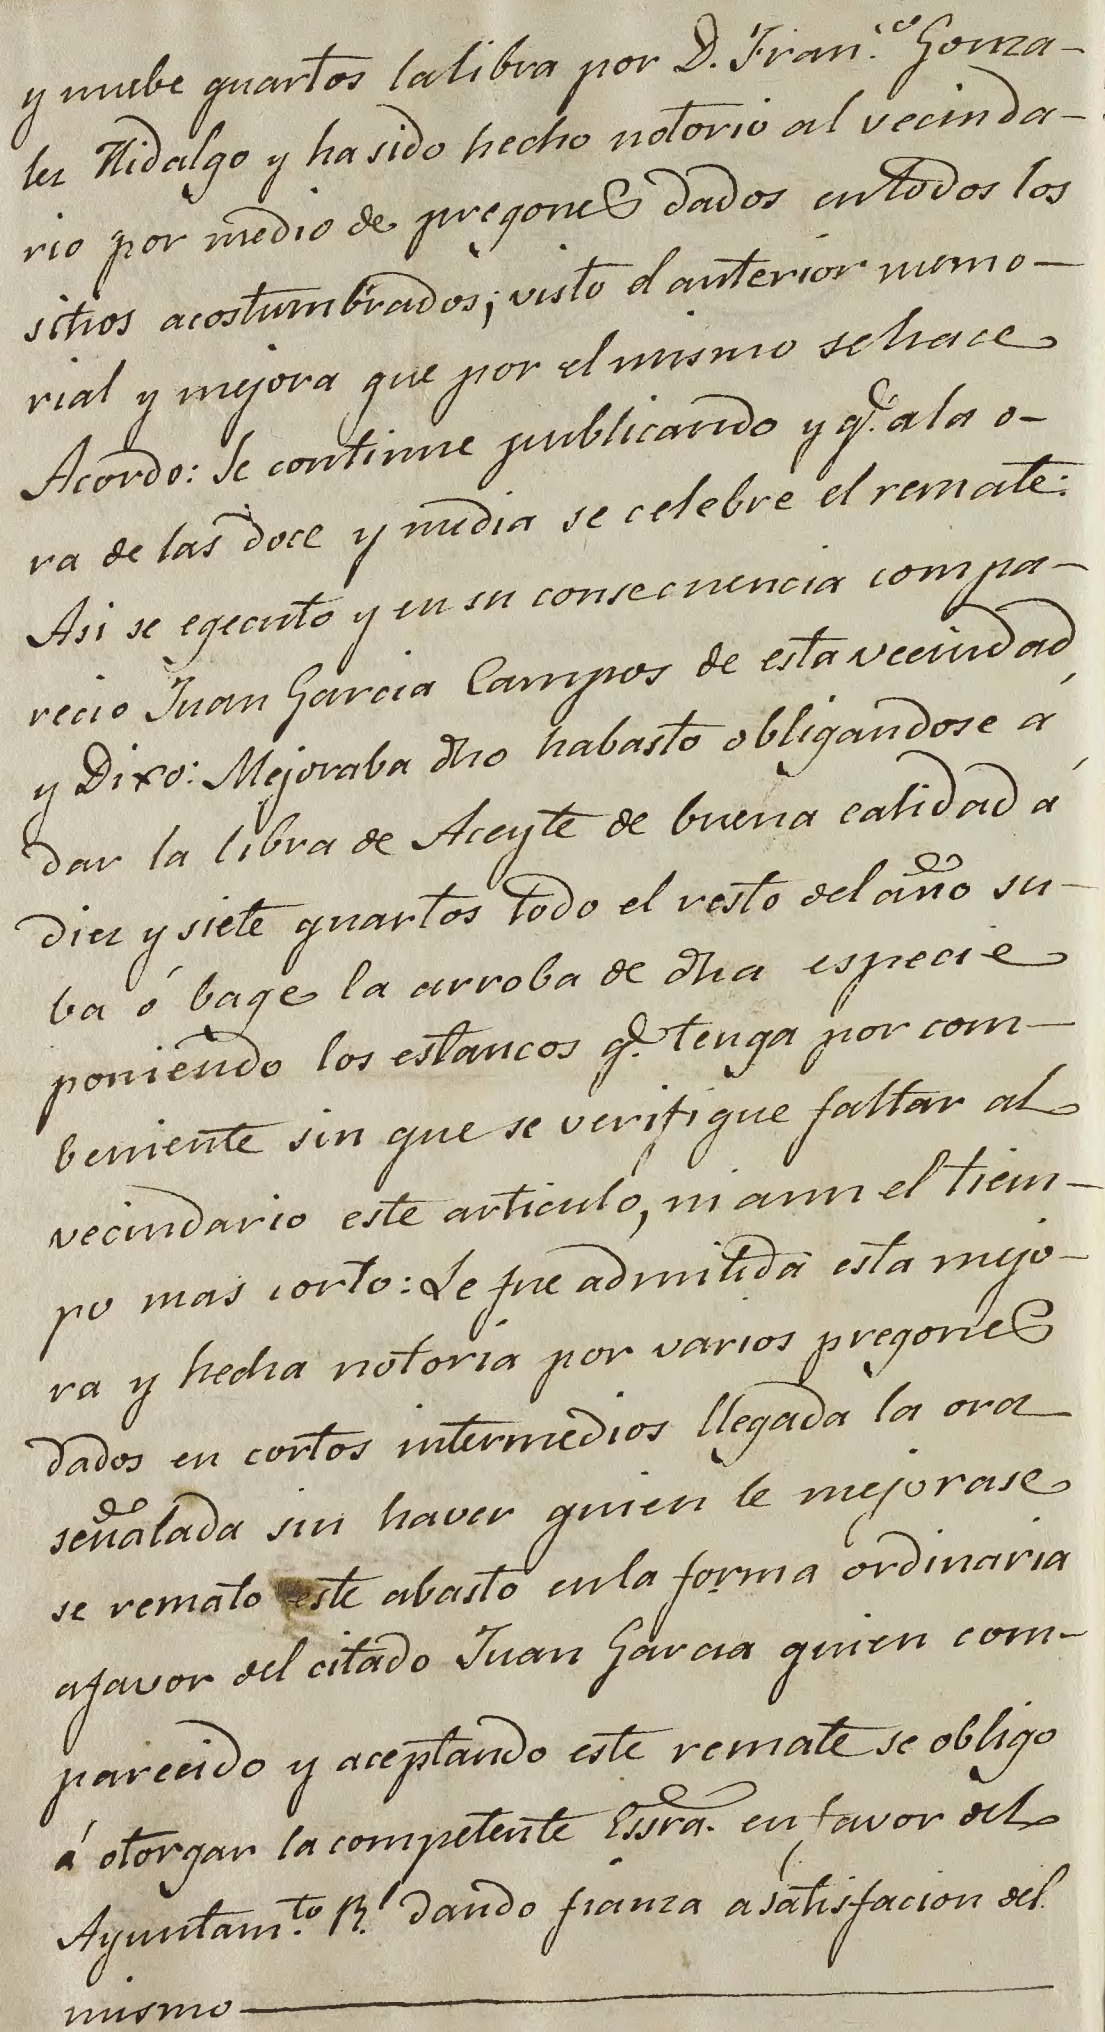 y nuebe quartos la libra por D. Fran.co Gonza-
lez Hidalgo y ha sido hecho notorio al vecinda-
rio por medio de pregones dados en todos los
sitios acostumbrados; visto el anterior memo-
rial y mejora que por el mismo se hace
Acordo: Se continue publicando y q.e a la o-
ra de las doce y media se celebre el remate:
Asi se egecuto y en su consecuencia compa-
recio Juan Garcia Campos de esta vecindad
y Dixo: Mejoraba dho habasto obligandose á
dar la libra de Aceyte de buena calidad á
diez y siete quartos todo el resto del año su-
ba ó bage la arroba de dha especie
poniendo los estancos q.e tenga por com-
beniente sin que se verifique faltar al
vecindario este articulo, ni aun el tiem-
po mas corto: Le fue admitida esta mejo-
ra y hecha notoria por varios pregones
dados en cortos intermedios llegada la ora
señalada sin haver quien le mejorase
se remato este abasto en la forma ordinaria
a favor del citado Juan Garcia quien com-
parecido y aceptando este remate se obligo
á otorgar la competente Essra. en favor del
Ayuntam.to R.l dando fianza a satisfacion del
mismo